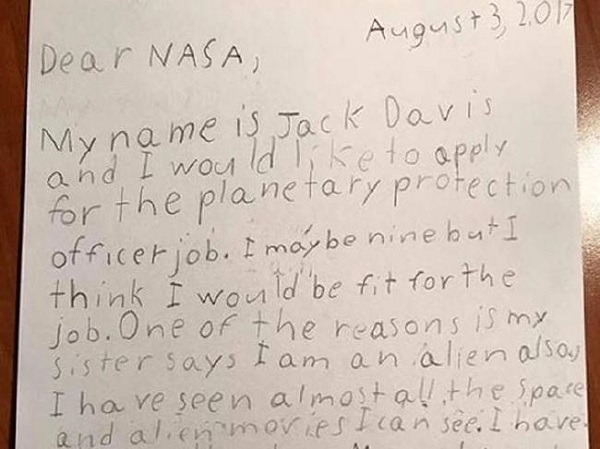 August 3, 2017
Dear NASA,
My name is Jack Davis
and I would like to apply
for the planetary protection
officer job. I may be nine but I
think I would be fit for the
job. One of the reasons is my
sister says I am an alien also,
I have seen almost all the space
and alien movies I can see. I have